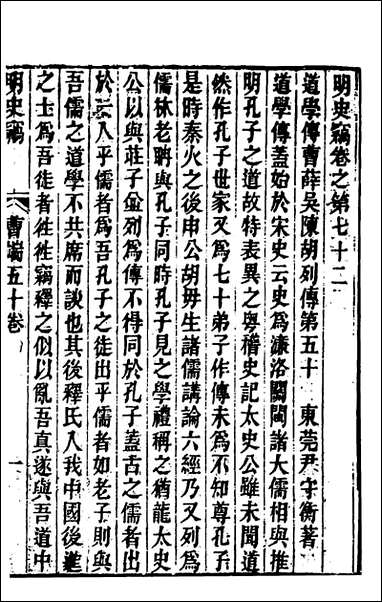 明史竊卷之第七十二
道學傳曹薛吳陳胡列傳第五十　東莞尹守衡著
道學傳蓋始於宋史云史爲濂洛關閩諸大儒相與推
明孔子之道故特表異之粵稽史記太史公雖未聞道
然作孔子世家又爲七十弟子作傳未爲不知尊孔子
是時秦火之後申公胡毋生諸儒講論六經乃又列爲
儒林老聃與孔子同時孔子見之學禮稱之猶龍太史
公以與莊子並列爲傳不得同於孔子蓋古之儒者出
於一人乎儒者爲吾孔子之徒出乎儒者如老子則與
吾儒之道學不共席而談也其後釋氏入我中國後進
之士爲吾徒者徃徃竊釋之似以亂吾真遂與吾道中
明史竊　曹端五十卷　一